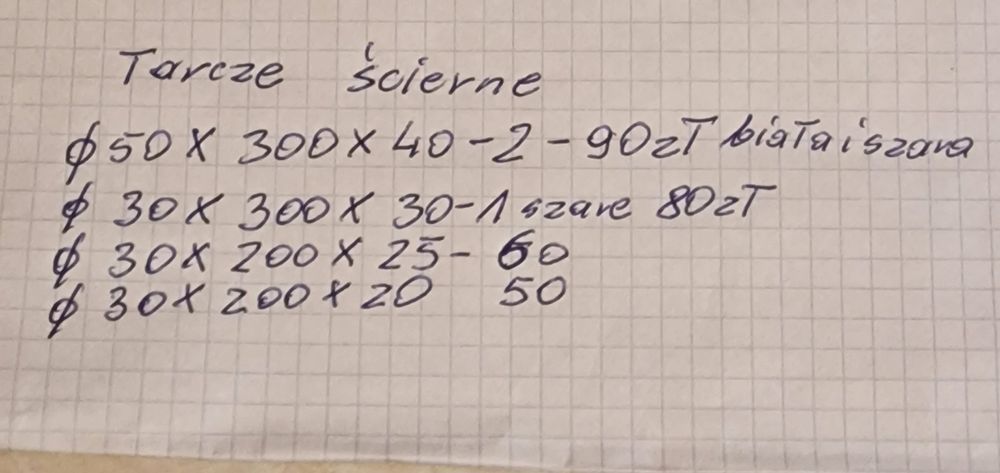 Tarcze ścierne
ϕ 50 x 300 x 40 - 2 - 90 zł biała i szara
ϕ 30 x 300 x 30 - 1 szare 80 zł
ϕ 30 x 200 x 25 - 60
ϕ 30 x 200 x 20 50